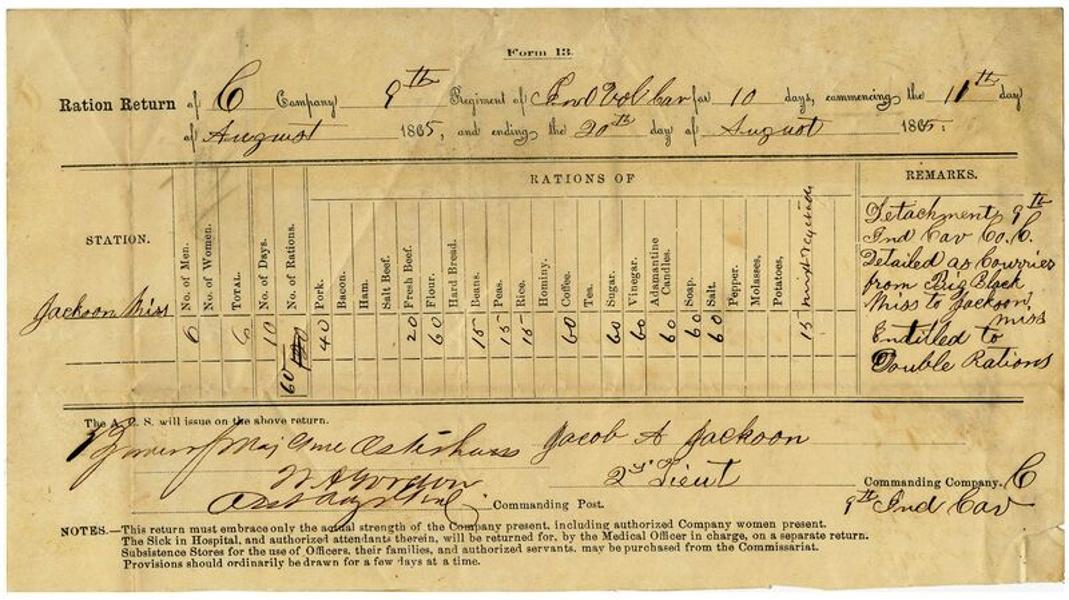 Form 13.
Ration Return of C Company 9th Regiment of Ind Vol Cav for 10 days, commencing the 11th day
of August 1865, and ending the 20th day of August 1865:
RATIONS OF
REMARKS.
STATION.
No. of Men.
No. of Women.
TOTAL.
No. of Days.
No. of Rations.
Pork.
Bacon.
Ham.
Salt Beef.
Fresh Beef.
Flour.
Hard Bread.
Beans.
Peas.
Rice.
Hominy.
Coffee.
Tea.
Sugar.
Vinegar.
Adamantine Candles.
Soap.
Salt.
Pepper.
Molasses.
Potatoes,
Jackson Miss 6 6 10 60 40 20 60 15 15 15 60 60 60 60 60 60 15
Detachments 9th
Ind Cav Co. C.
Detailed as Courries
from Big Black
Miss to Jackson,
Miss
Entitled to
Double Rations
The A. C. S. will issue on the above return.
By order of Maj Gnl Osterhaus Jacob A Jackson
W A Gordon 2nd Lieut Commanding Company. C
Commanding Post. 9th Ind Cav
NOTES.—This return must embrace only the actual strength of the Company present, including authorized Company women present.
The Sick in Hospital, and authorized attendants therein, will be returned for, by the Medical Officer in charge, on a separate return.
Subsistence Stores for the use of Officers, their families, and authorized servants, may be purchased from the Commissariat.
Provisions should ordinarily be drawn for a few days at a time.